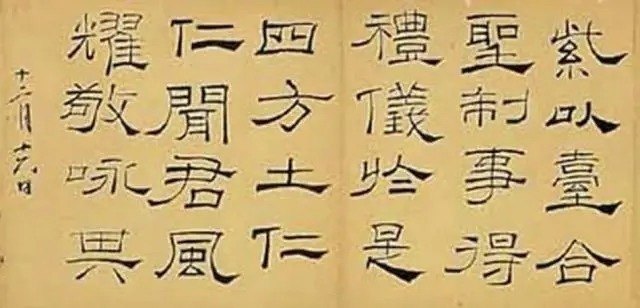 紫以臺合
聖制事得
禮儀於是
四方土仁
仁聞君風
耀敬咏其
十二月十六日